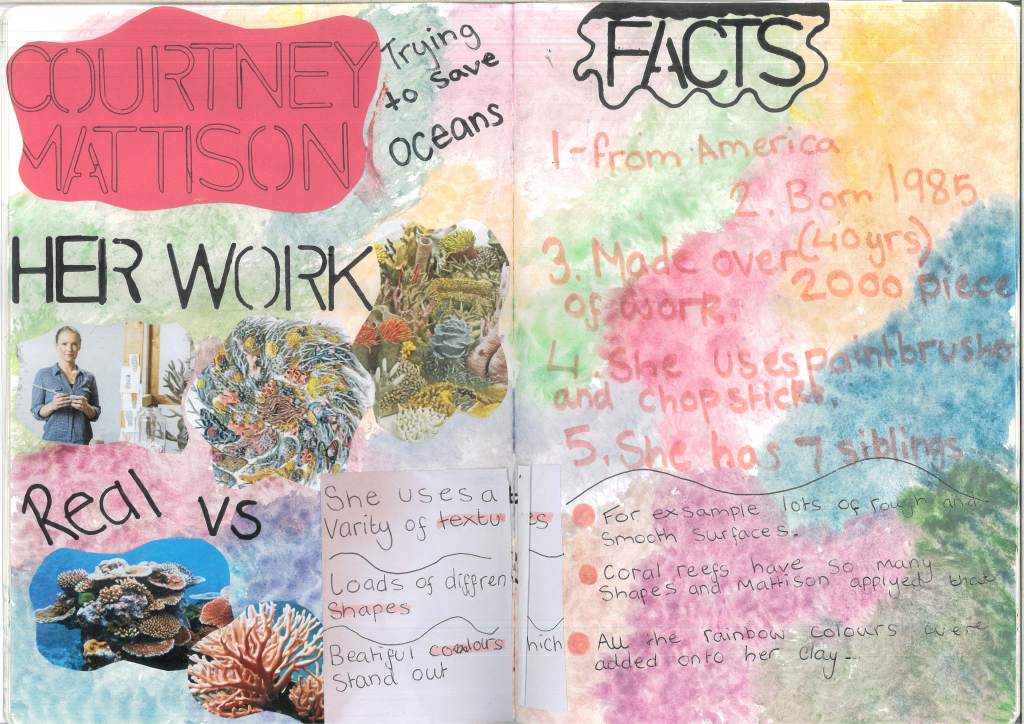 COURTNEY
MATTISON
Trying
to save
oceans
HER WORK
Real vs
She uses a
Varity of textu es
Loads of differen
Shapes
Beatiful colours hich
Stand out
FACTS
1-from America
2. Born 1985
(40yrs)
3. Made over 2000 piece
of worp.
4. She uses paintbrushes
and chopsticks.
5. She has 7 siblings
For exsample lots of rough and
Smooth surfaces.
Coral reefs have so many
Shapes and Mattison applyed that
All the rainbow colours were
added onto her clay-